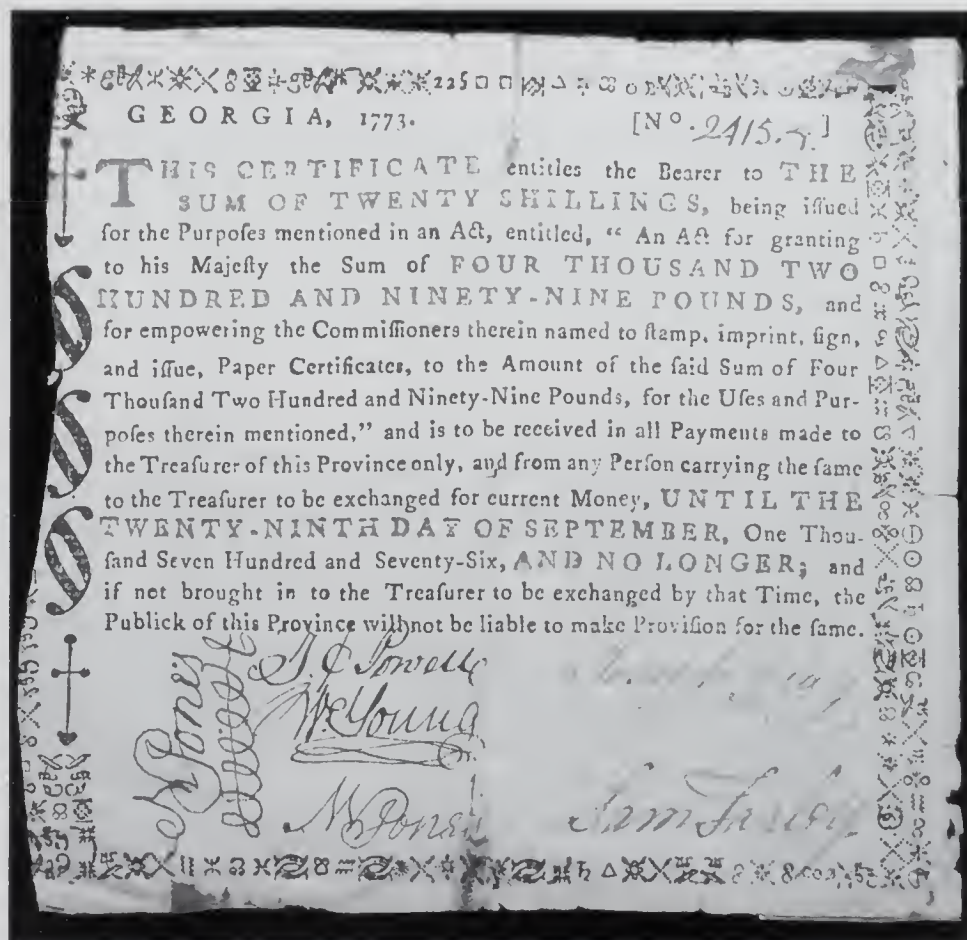 GEORGIA, 1773. [No. 2415.
THIS CERTIFICATE entitles the Bearer to THE
SUM OF TWENTY SHILLINGS, being iſſued
for the Purpoſes mentioned in an Act, entitled, “ An Act for granting
to his Majeſty the Sum of FOUR THOUSAND TWO
HUNDRED AND NINETY-NINE POUNDS, and
for empowering the Commiſſioners therein named to ſtamp, imprint, ſign,
and iſſue, Paper Certificates, to the Amount of the ſaid Sum of Four
Thouſand Two Hundred and Ninety-Nine Pounds, for the Uſes and Pur-
poſes therein mentioned,” and is to be received in all Payments made to
the Treaſurer of this Province only, and from any Perſon carrying the ſame
to the Treaſurer to be exchanged for current Money, UNTIL THE
TWENTY-NINTH DAY OF SEPTEMBER, One Thou-
ſand Seven Hundred and Seventy-Six, AND NO LONGER; and
if not brought in to the Treaſurer to be exchanged by that Time, the
Publick of this Province will not be liable to make Proviſion for the ſame.
Powell
Wm Young
N Jones
Jones
Sam Farley